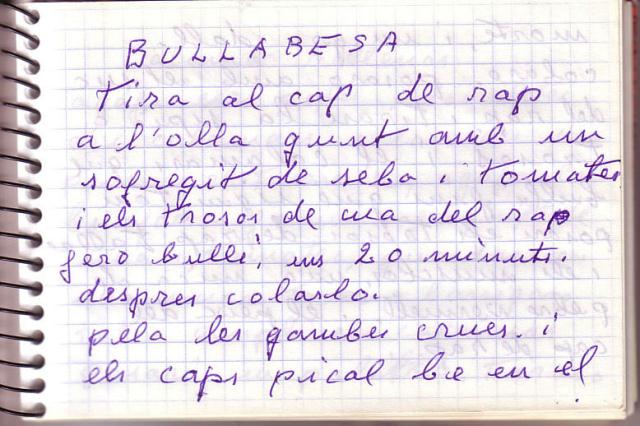 BULLABESA
Tira al cap de rap
a l'olla gunt amb un
sofregit de seba i tomates
i els trosos de cua del rap
fero bulli, uns 20 minuts.
despres colarlo.
pela les gambes crues. i
els caps pical be en el